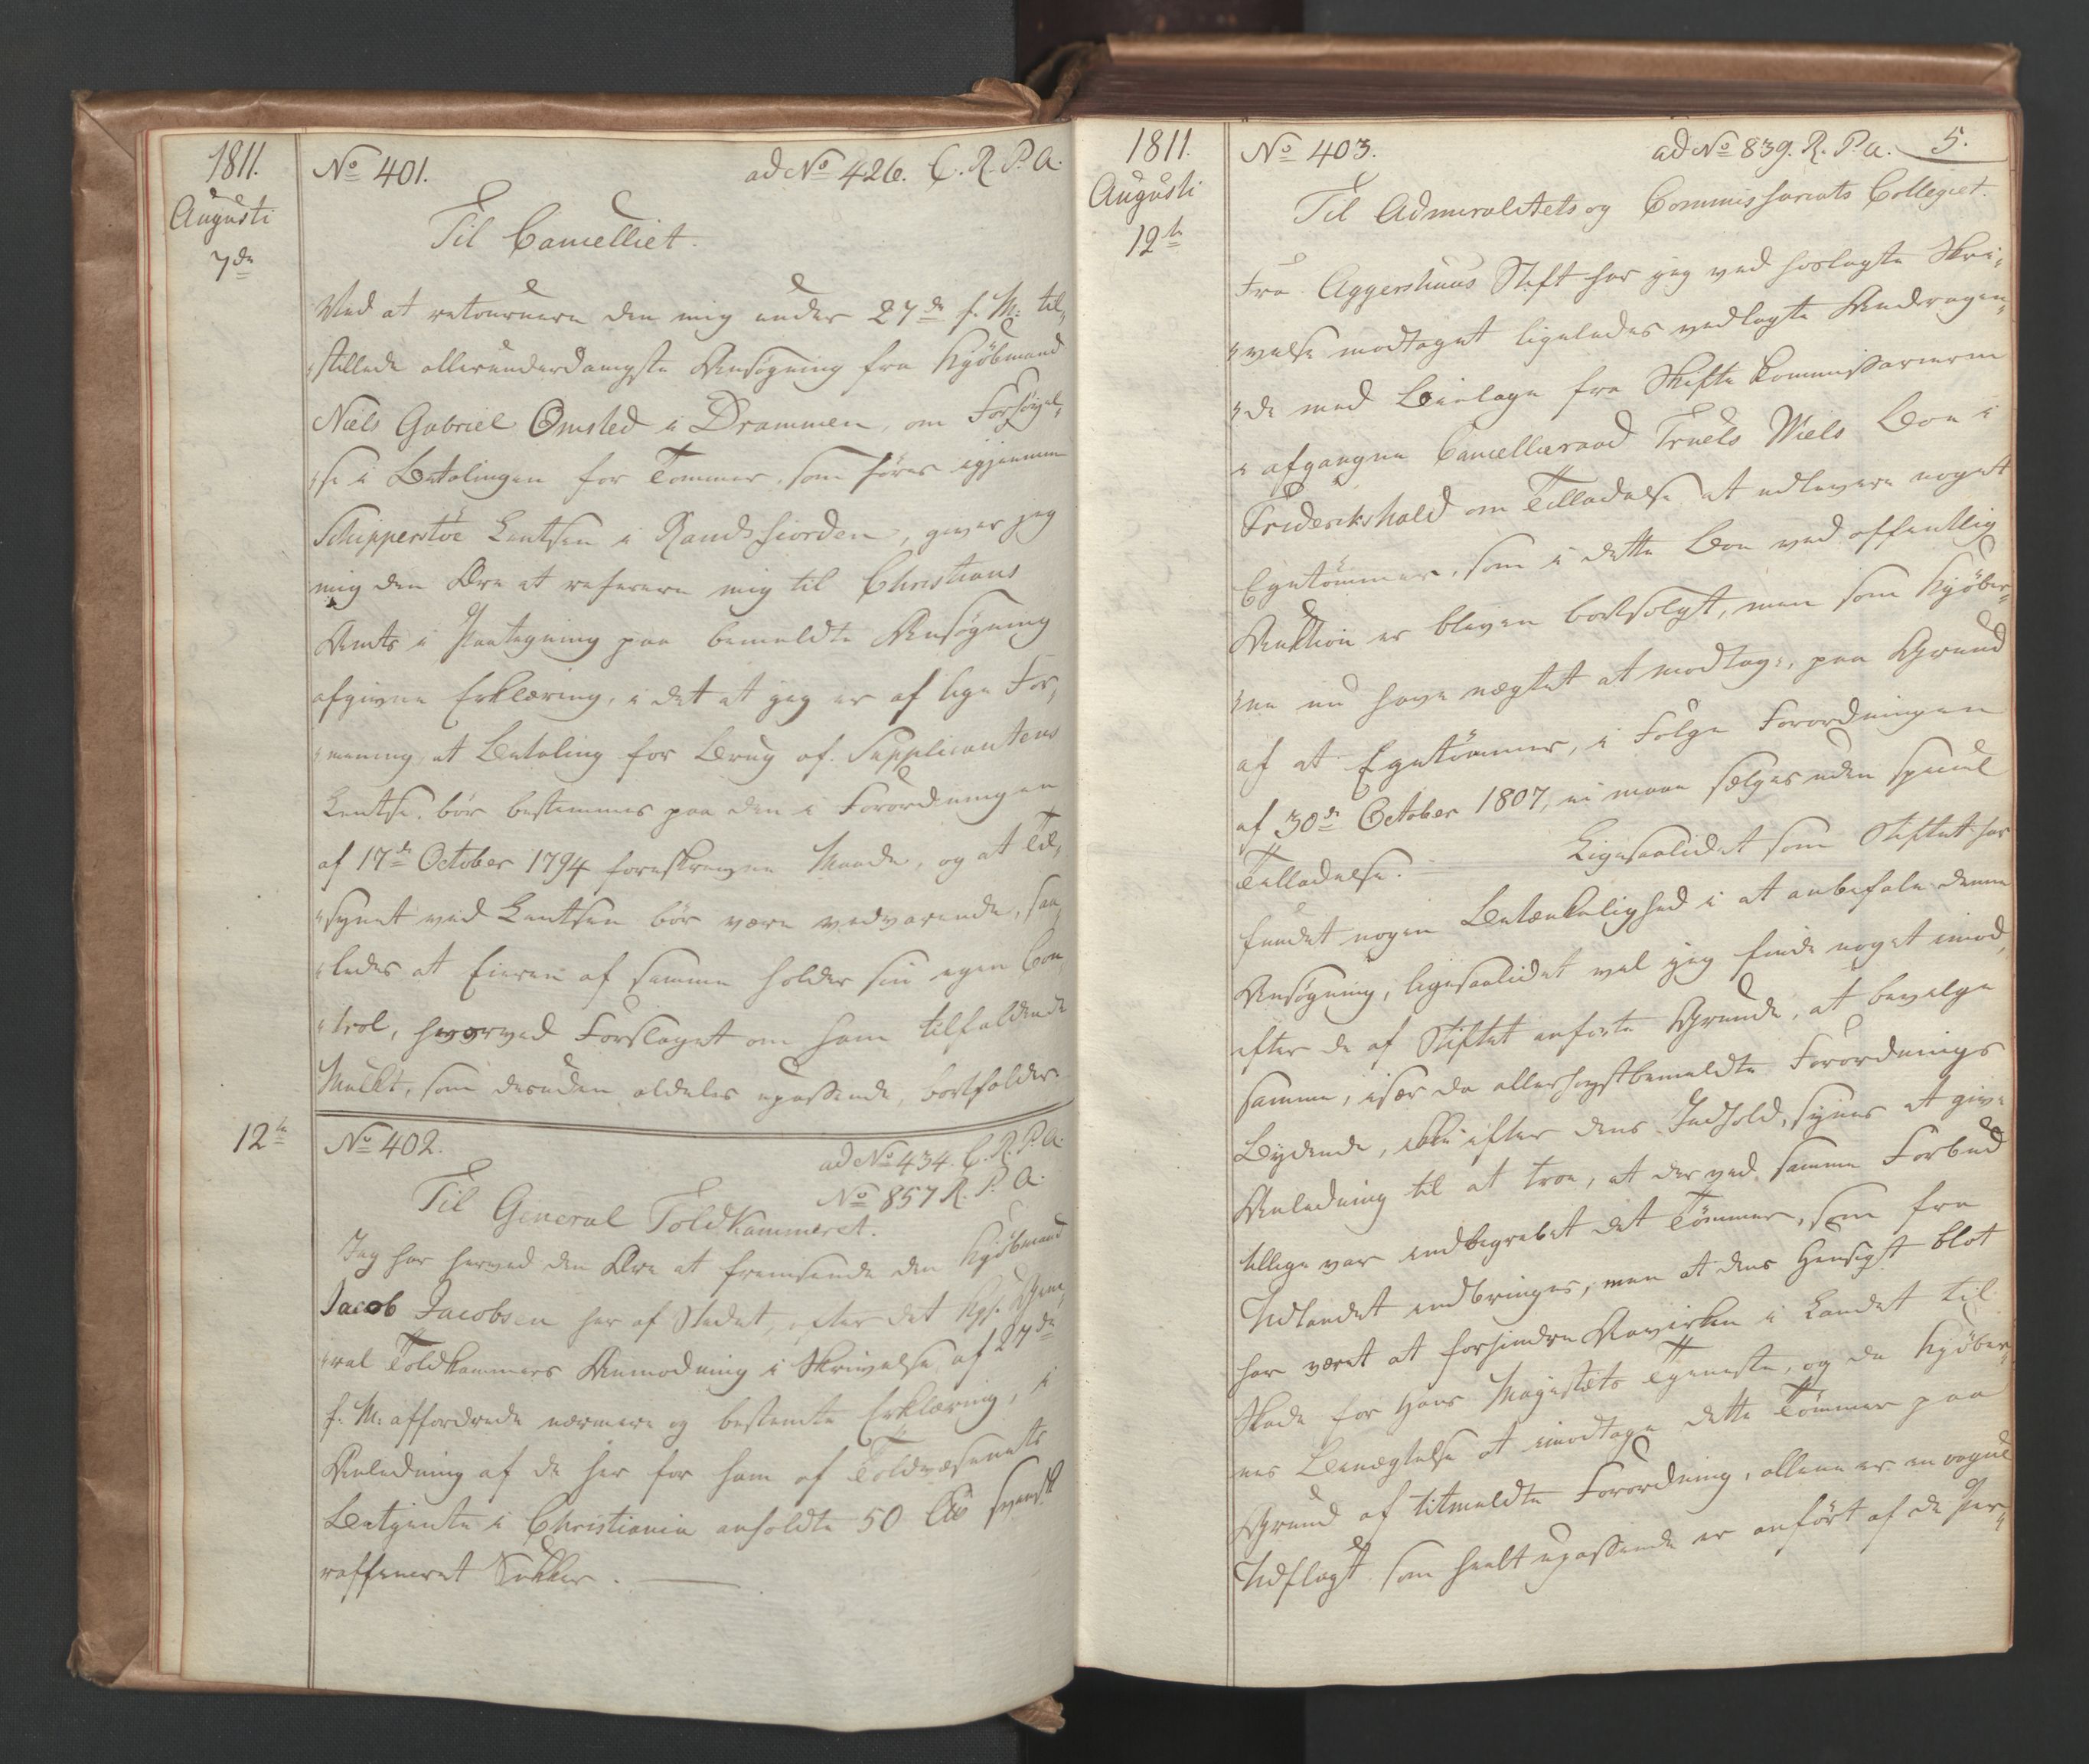 1811.
Augusti
7de
No 401.
ad No 426. C. R. P. A.
Til Cancelliet.
Ved at retournere den mig under 27de f. M: til„
„stillede allerunderdanigste Ansøgning fra Kjøbmand
Niels Gabriel Omsted i Drammen, om Forhøyel„
„se i Betalingen for Tømmer, som føres igjennem
Schipperstøe Lentsen i Randsfiorden, giver jeg
mig den Ære at referere mig til Christians
Amts i Paategning paa bemeldte Ansøgning
afgivne Erklæring, i det at jeg er af lige For„
„mening, at Betaling for Brug af Supplicantens
Lentse, bør bestemmes paa den i Forordningen
af 17de October 1794 foreskrevne Maade, og at Til„
„synet ved Lentsen bør være vedvarende, saa„
„ledes at Eieren af samme holder sin egen Con„
„trol, hvorved Forslaget om ham tilfaldende
Mulkt, som desuden aldeles upassende, bortfalder.
12te
No 402.
ad No 434. C. R. P. A.
No 857 R. P. A.
Til General Toldkammeret.
Jeg har herved den Ære at fremsende den Kjøbmand
Jacob Jacobsen her af Stedet, efter det Kgl. Gene„
„ral Toldkammers Anmodning i Skrivelse af 27de
f. M: affordrede nærmere og bestemte Erklæring, i
Anledning af de her for ham af Toldvæsenets
Betjente i Christiania anholdte 50 svensk
raffineret Sukker.
1811.
Augusti
12te
No 403.
ad No 839. R. P. A.
5.
Til Admiralitets og Commissariats Collegiet.
Fra Aggershuus Stift har jeg ved hoslagte Skri„
„velse modtaget ligeledes vedlagte Andragen„
„de med Bielage fra Skifte Commissarierne
i afgangne Cancellieraad Truels Wiels Boe i
Friderikshald om Tilladelse at udlevere noget
Egetømmer, som i dette Boe ved offentlig
Auktion er bleven bortsolgt, men som Kjøber„
„ne nu have nægtet at modtage, paa Grund
af at Egetømmer, i Følge Forordningen
af 30de October 1807, ei maae sælges uden speciel
Tilladelse. Ligesaalidet som Stiftet har
fundet nogen Betænkelighed i at anbefale denne
Ansøgning, ligesaalidet vel jeg finde noget imod,
efter de af Stiftet anførte Grunde, at bevilge
samme, især da allerhøystbemeldte Forordnings
Bydende, ikke efter dens Indhold, synes at give
Anledning til at troe, at der ved samme Forbud
tillige var indbegrebet det Tømmer, som fra
Udlandet indbringes, men at dens Hensigt blot
har været at forhindre Rovirken i Landet til
Skade for Hans Majestæts Tjeneste, og da Kjøber„
nes Benægtelse at imodtage dette Tømmer paa
Grund af titmeldte Forordning, allene er en vogue
Udflugt som heelt upassende er anført af de Her„